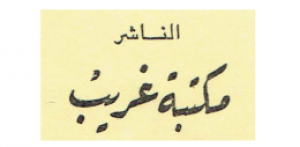 الناشر
مكتبة غريب